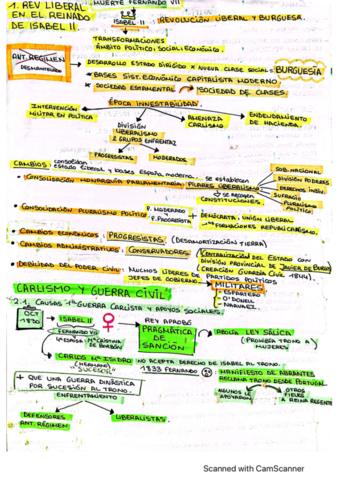 MUERTE FERNANDO VII
1. REV LIBERAL
EN EL REINADO
DE ISABEL II.
ISABEL II
REVOLUCIÓN LIBERAL Y BURGUESA.
TRANSFORMACIONES
ÁMBITO POLÍTICO, SOCIAL, ECONÓMICO.
ANT. RÉGIMEN
DESMANTELANDO
DESARROLLO ESTADO DIRIGIDO X NUEVA CLASE SOCIAL: BURGUESÍA
* BASES SIST. ECONÓMICO CAPITALISTA MODERNO.
* SOCIEDAD ESTAMENTAL → SOCIEDAD DE CLASES.
ÉPOCA INNESTABILIDAD.
INTERVENCIÓN
MILITAR EN POLÍTICA
DIVISIÓN
LIBERALISMO
2 GRUPOS ENFRENTAZ
PROGRESISTAS
MODERADOS
AMENAZA
CARLISMO
ENDEUDAMIENTO
DE HACIENDA.
CAMBIOS consolidan
estado liberal y bases España moderna... se establecen
• CONSOLIDACIÓN MONARQUÍA PARLAMENTARIA: PILARES LIBERALISMO
se recogen
CONSTITUCIONES.
SOB. NACIONAL
DIVISIÓN PODERES
DERECHOS INDIV.
SUFRAGIO
PLURALISMO
POLÍTICO
• CONSOLIDACIÓN PLURALISMO POLÍTICO
P. MODERADO
Y
P. PROGRESISTA
+ DEMÓCRATA, UNIÓN LIBERAL
→ FORMACIONES REPUBLICARISMO.
• CAMBIOS ECONÓMICOS: PROGRESISTAS (DESAMORTIZACIÓN TIERRA)
• CAMBIOS ADMINISTRATIVOS: CONSERVADORES (CENTRALIZACIÓN DEL ESTADO CON
DIVISIÓN PROVINCIAL DE JAVIER DE BURGOS)
(CREACIÓN GUARDIA CIVIL 1844).
• DEBILIDAD DEL PODER CIVIL: MUCHOS LÍDERES DE PARTIDOS POLÍTICOS
JEFES DE GOBIERNO → MILITARES
• ESPARTERO
• O'DONELL
• NARVAEZ.
CARLISMO Y GUERRA CIVIL
2.1. CAUSAS 1ª GUERRA CARLISTA Y APOYOS SOCIALES.
OCT
1830
ISABEL II
FERNANDO VII
Mª CRISTINA
DE BORBÓN
REY APROBÓ
PRAGMÁTICA
DE
SANCIÓN
ABOLÍA LEY SÁLICA
(PROHIBÍA TRONO A
MUJERES)
CARLOS Mª ISIDRO
(HERMANO)
"SUCESOR"
NO ACEPTA DERECHO DE ISABEL AL TRONO.
1833 FERNANDO
MANIFIESTO DE ABRANTES
RECLAMA TRONO DESDE PORTUGAL.
ALGUNOS LE
APOYARON
OTROS
FIELES
A REINA REGENTE
+ QUE UNA GUERRA DINÁSTICA
POR SUCESIÓN AL TRONO.
ENFRENTAMIENTO
DEFENSORES
ANT. RÉGIMEN
LIBERALISTAS.
Scanned with CamScanner